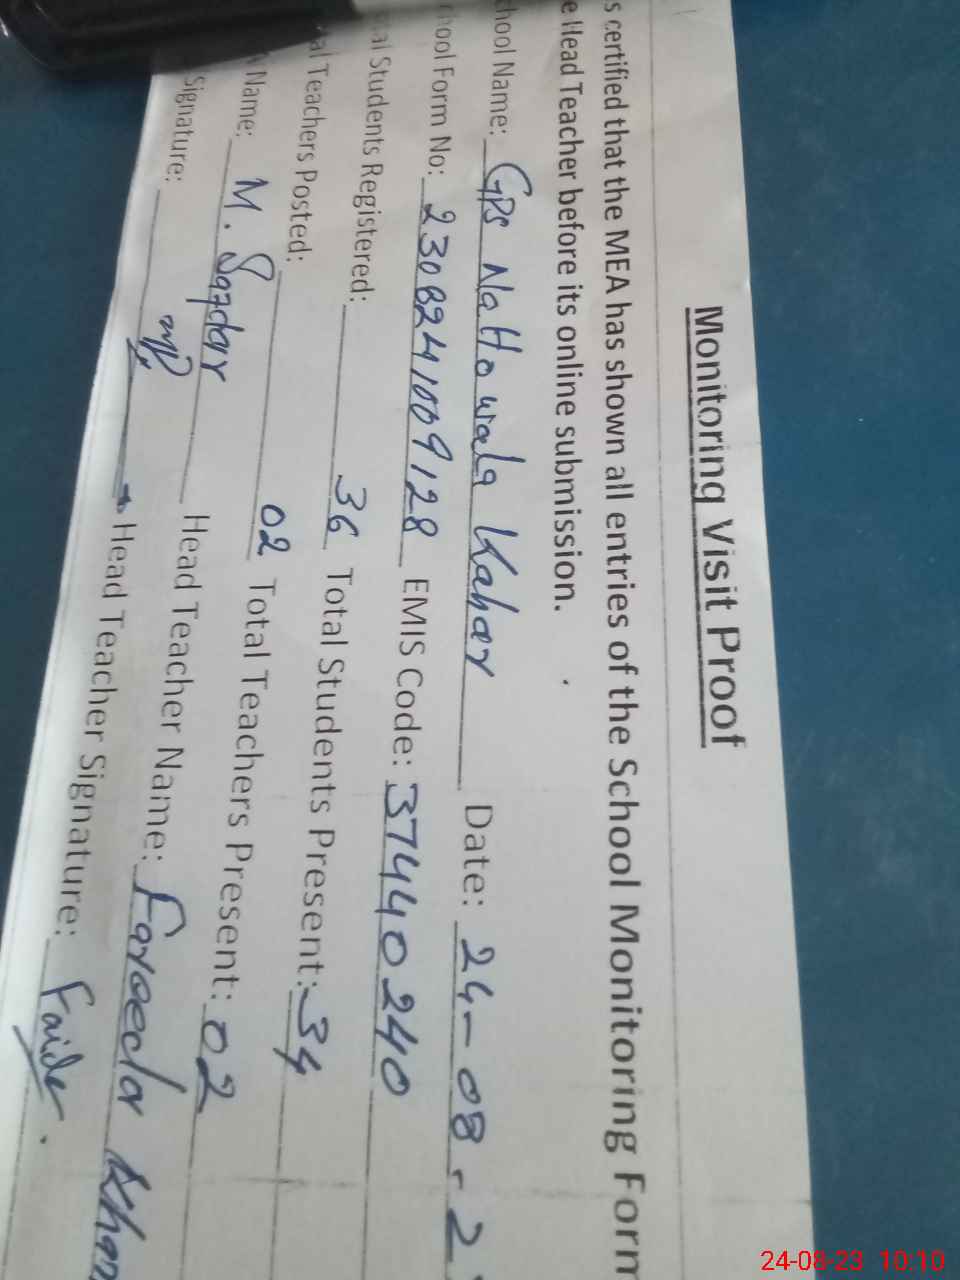 Monitoring Visit Proof
s certified that the MEA has shown all entries of the School Monitoring Form
e Head Teacher before its online submission.
chool Name: GPS Nattowala Kahar Date: 24-08-2
chool Form No: 2308241009128 EMIS Code: 37440240
al Students Registered: 36 Total Students Present: 34
al Teachers Posted: 02 Total Teachers Present: 02
Name: M. Safdar Head Teacher Name: Fareeda Khan
Signature: Head Teacher Signature:
24-08-23 10:10